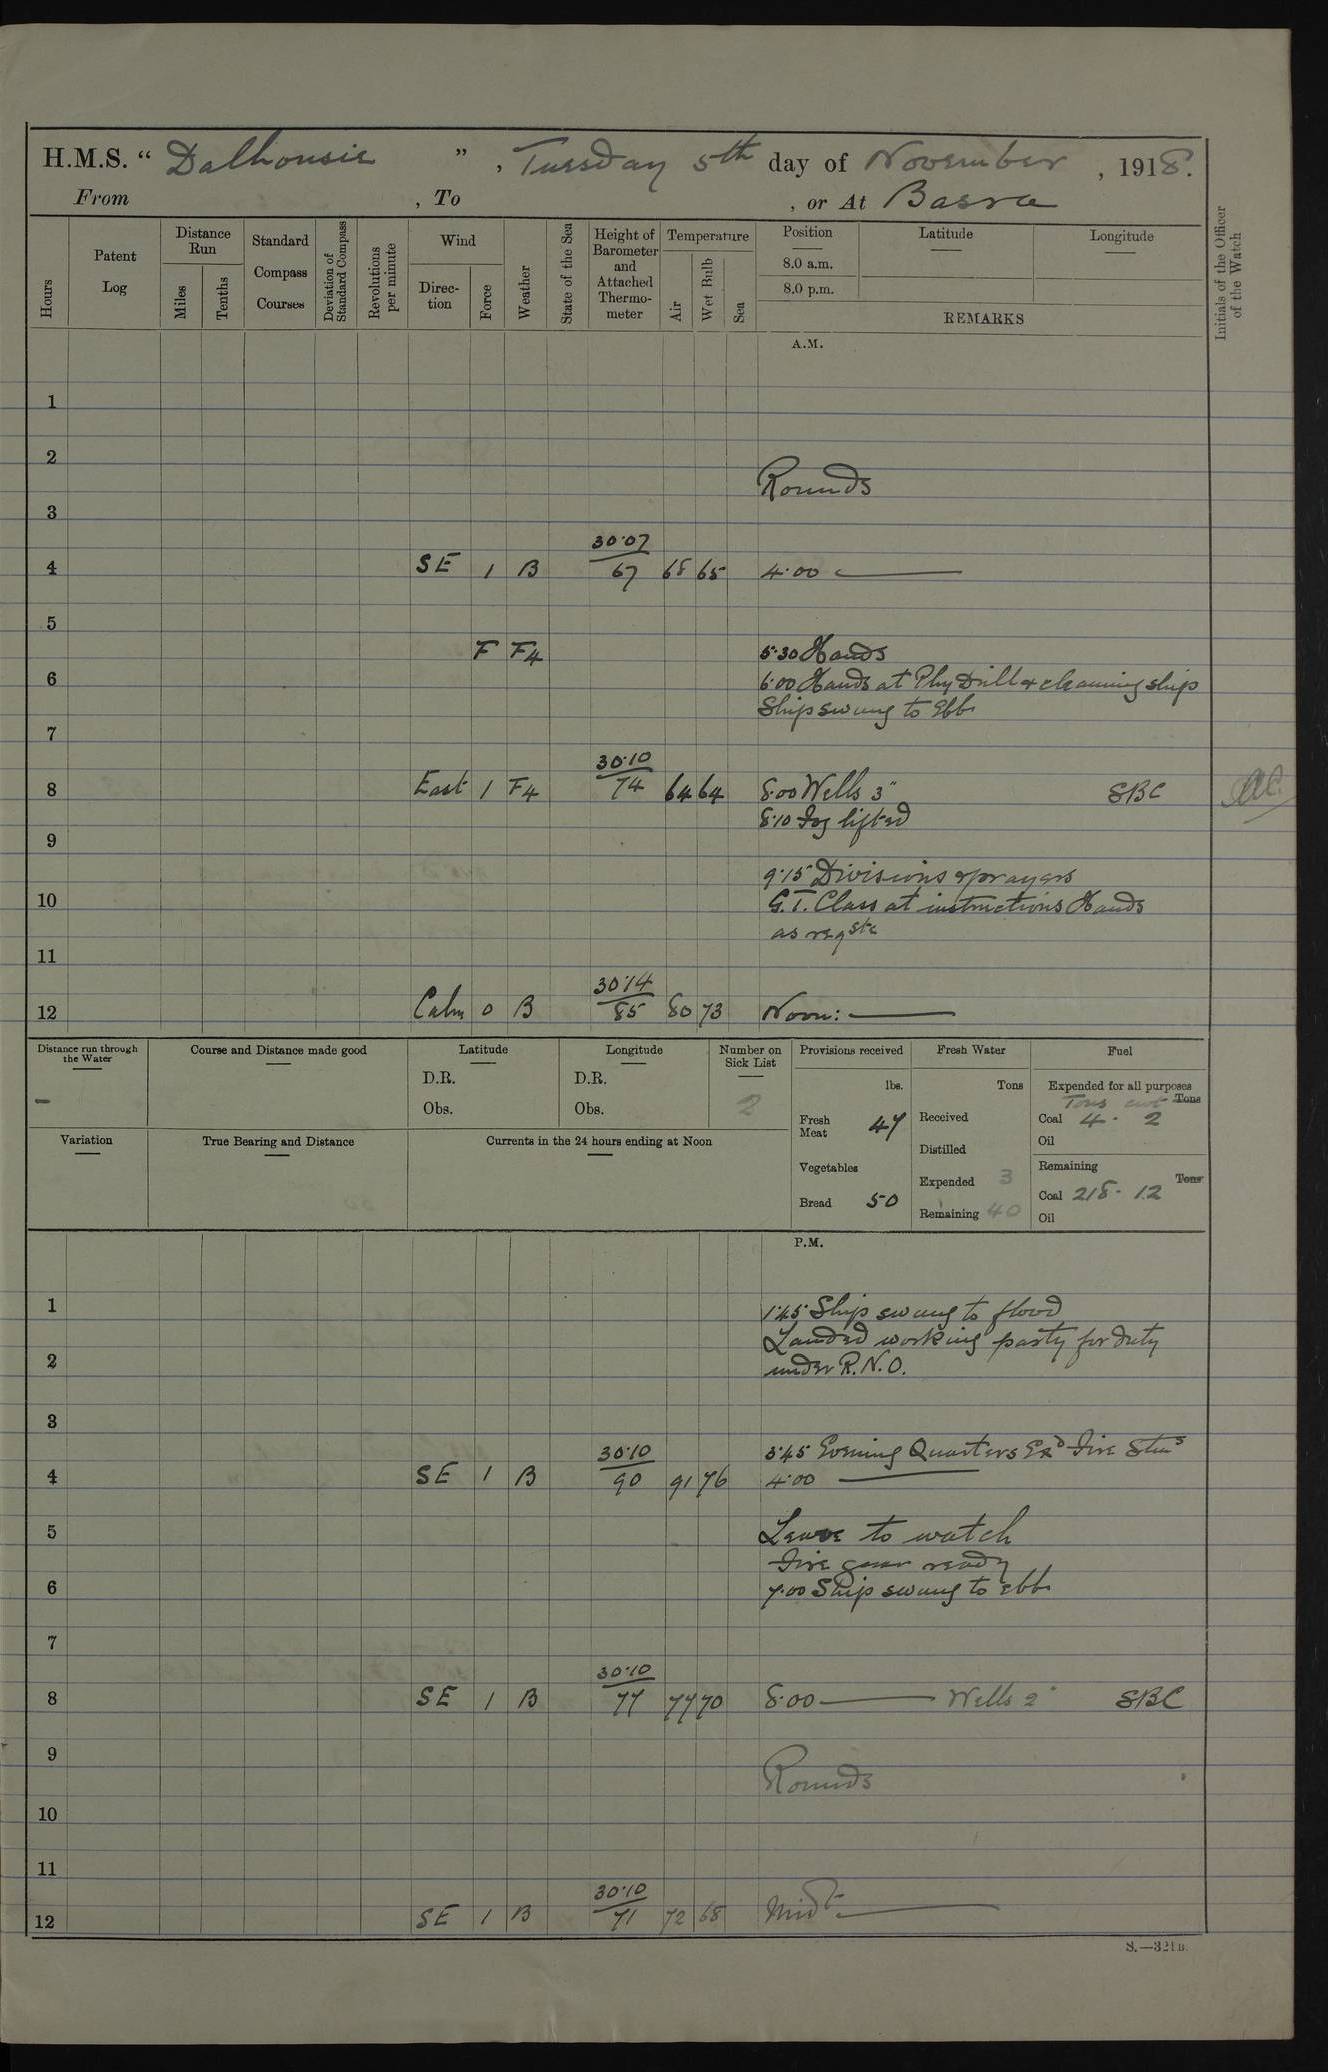 H.M.S. “ Dalhousie ”, Tuesday 5th day of November, 1918.
From , To , or At Basra
Hours
Patent Log
Distance Run
Miles
Tenths
Standard Compass Courses
Deviation of Standard Compass
Revolutions per minute
Wind
Direction
Force
Weather
State of the Sea
Height of Barometer and Attached Thermometer
Temperature
Air
Wet Bulb
Sea
Position
8.0 a.m.
8.0 p.m.
Latitude
Longitude
REMARKS
Initials of the Officer of the Watch
A.M.
1
2
Rounds
3
30·07
4 SE 1 B 67 68 65 4·00
5
F F4 5·30 Hands
6 6·00 Hands at Phy Drill & cleaning ship
Ship swung to Ebb
7
30·10
8 East 1 F4 74 64 64 8·00 Wells 3" SBC
8·10 Fog lifted
9
9·15 Divisions & prayers
10 G.T. Class at instructions Hands
as reqste
11
30·14
12 Calm 0 B 85 80 73 Noon:
Distance run through the Water
-
Course and Distance made good
Latitude
D.R.
Obs.
Longitude
D.R.
Obs.
Number on Sick List
2
Provisions received
lbs.
Fresh Meat 47
Vegetables
Bread 50
Fresh Water
Tons
Received
Distilled
Expended 3
Remaining 40
Fuel
Expended for all purposes
Tons cwt Tons
Coal 4 · 2
Oil
Remaining
Tons
Coal 218 · 12
Oil
Variation
True Bearing and Distance
Currents in the 24 hours ending at Noon
P.M.
1 1·45 Ship swung to flood
Landed working party for duty
2 under R.N.O.
3
30·10 3·45 Evening Quarters Exd Fire Stns
4 SE 1 B 90 91 76 4·00
5 Leave to watch
Fire gear ready
6 7·00 Ship swung to ebb
7
30·10
8 SE 1 B 77 77 70 8·00 Wells 2" SBC
9
Rounds
10
11
30·10
12 SE 1 B 71 72 68 Midt
S.—321B.